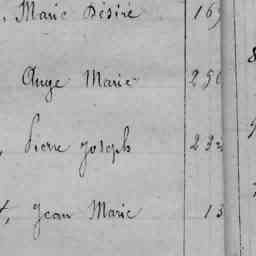 , Marie Désiré 169
Ange Marie 256
, Pierre Joseph 292
t, Jean Marie 13